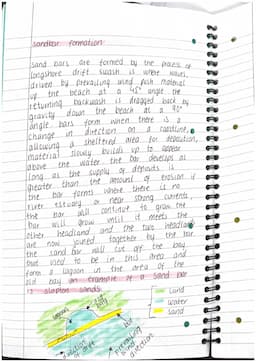 sandbar formation
Sand bars are formed by the process of
longshore drift swash is where waves,
driven by prevailing wind push material
up the beach at a 45° angle the
returning backwash is dragged back by
gravity down the beach at a 90°
angle bars form when there is a
change in direction on a coastline,
allowing a sheltered area for deposition,
material slowly builds up to appear
above the water the bar develops as
long as the supply of deposits is
greater than the amount of erosion if
the bar forms where there is no
river estuary or near strong currents
the bar will continue to grow the
bar will grow until it meets the
other headland and the two headlands
are now joined together by the bar
the sand bar will cut off the bay
that used to be in this area and
form a lagoon in the area of the
old bay an example of a sand bar
is slapton sands.
land
water
sand
lagoon
bar
direction
of drift
prevailing wind
direction